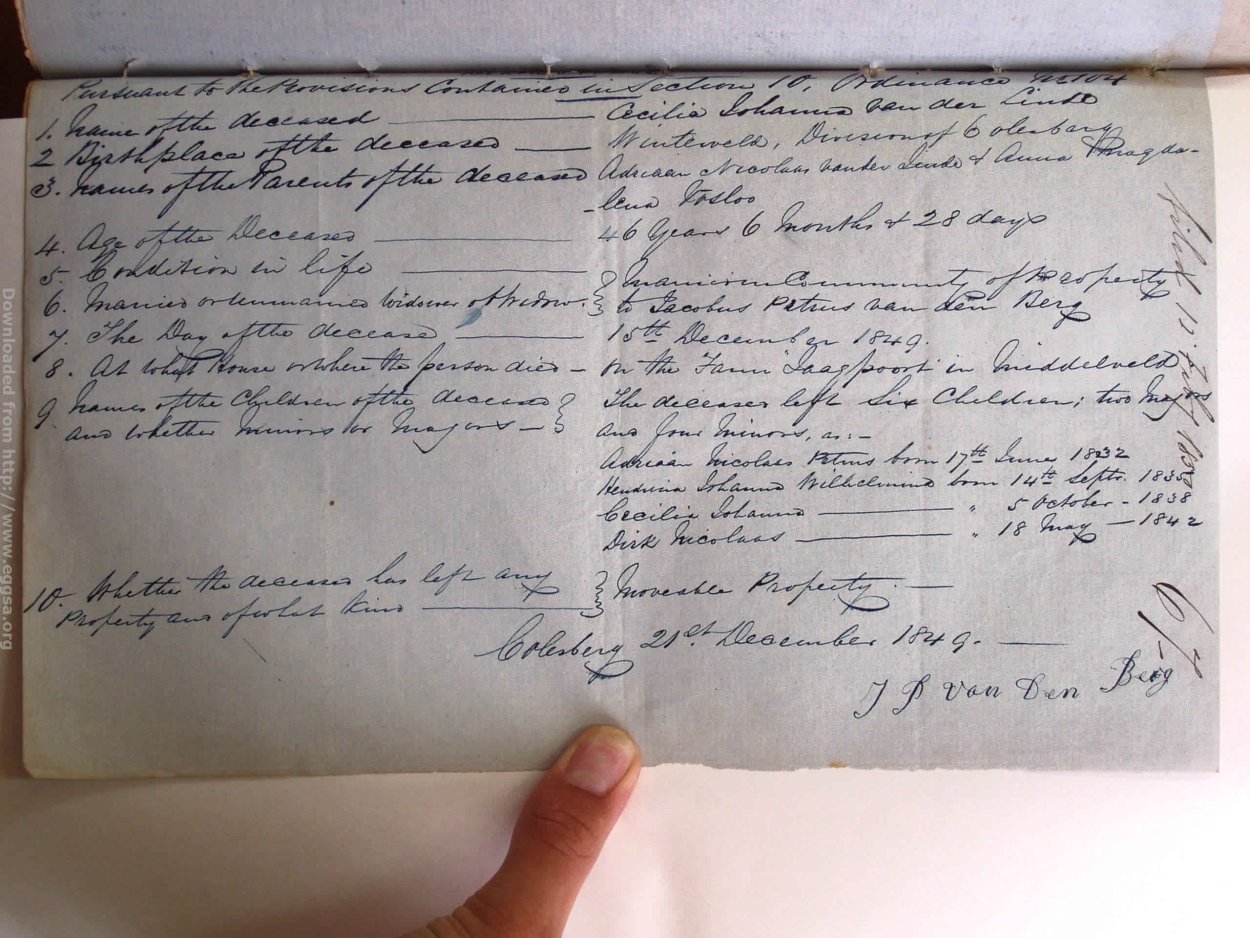 Pursuant to the Provisions Contained in Section 10, Ordinance No 104
1. Name of the deceased — Cecilia Johanna van der Linde
2 Birthplace of the deceased — Winterveld, Division of Colesberg
3. Names of the Parents of the deceased Adriaan Nicolaas van der Linde & Anna Magda-
-lena Fosloo
4. Age of the Deceased — 46 Years 6 Months & 28 days
5. Condition in life —
6. Married or Unmarried Widower or Widow. } Married in Community of Property
to Jacobus Petrus van den Berg
7. The Day of the decease — 15th December 1849.
8. At what House or where the person died – On the Farm Jaagpoort in Middelveld
9 Names of the Children of the deceased } The deceased left Six Children; two Majors
and whether Minors or Majors – and four Minors, as:–
Adriaan Nicolaas Petrus born 17th June 1832
Hendrina Johanna Wilhelmina born 14th Septr. 1835
Cecilia Johanna — " 5 October - 1838
Dirk Nicolaas — " 18 May — 1842
10. Whether the deceased has left any } Moveable Property. —
Property and of what kind —
Colesberg 21st December 1849. —
J P van Den Berg
Filed 12 Feby 1850
6/-
Downloaded from http://www.eggsa.org